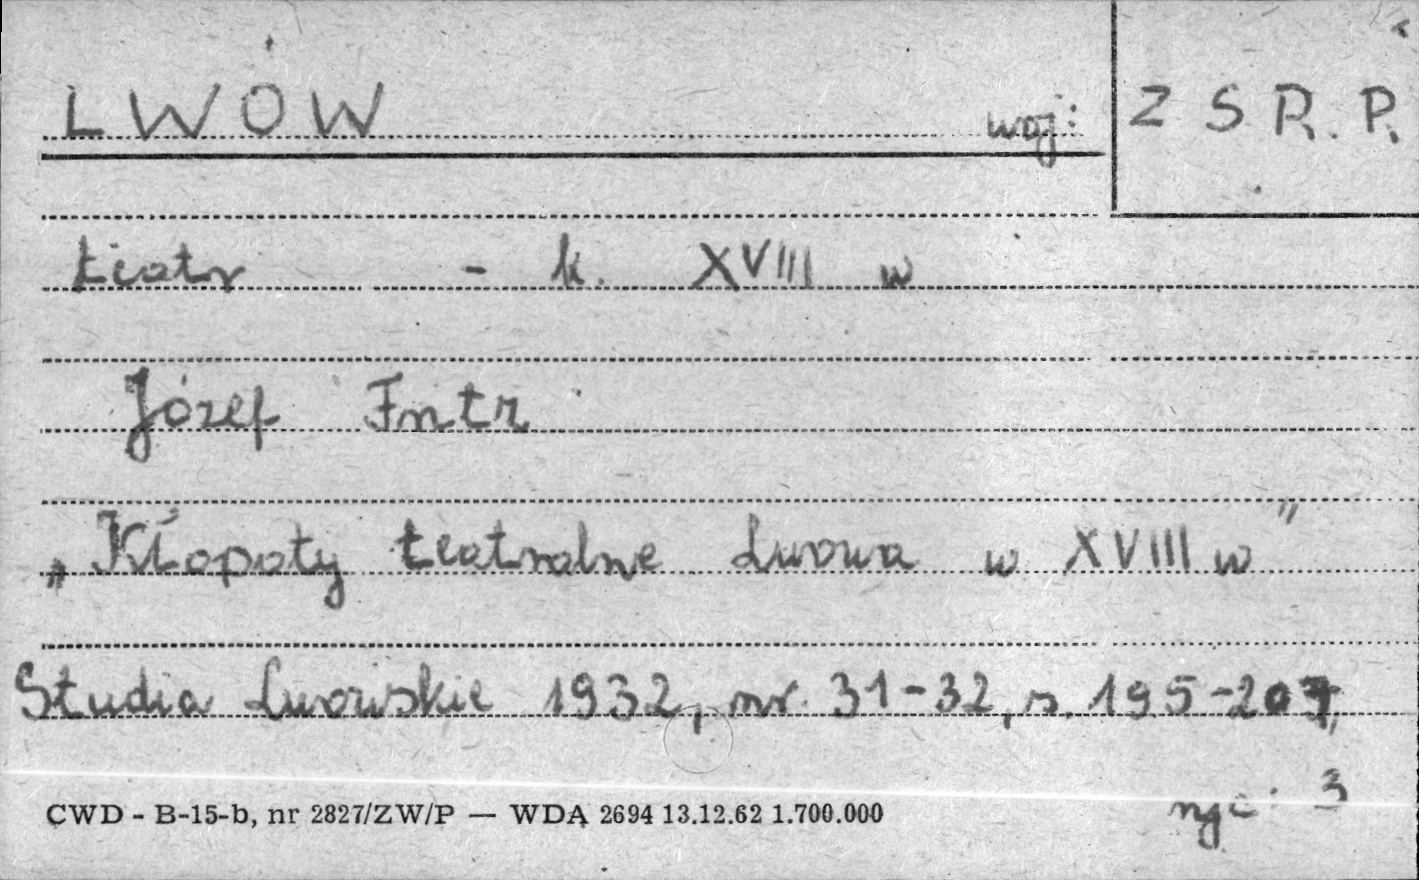 LWÓW woj: Z S R. R.
teatr - k. XVIII w
Józef Fntr
„Kłopoty teatralne Lwowa w XVIII w"
Studia Lwowskie 1932, nr. 31-32, s. 195-207,
CWD - B-15-b, nr 2827/ZW/P — WDA 2694 13.12.62 1.700.000
3